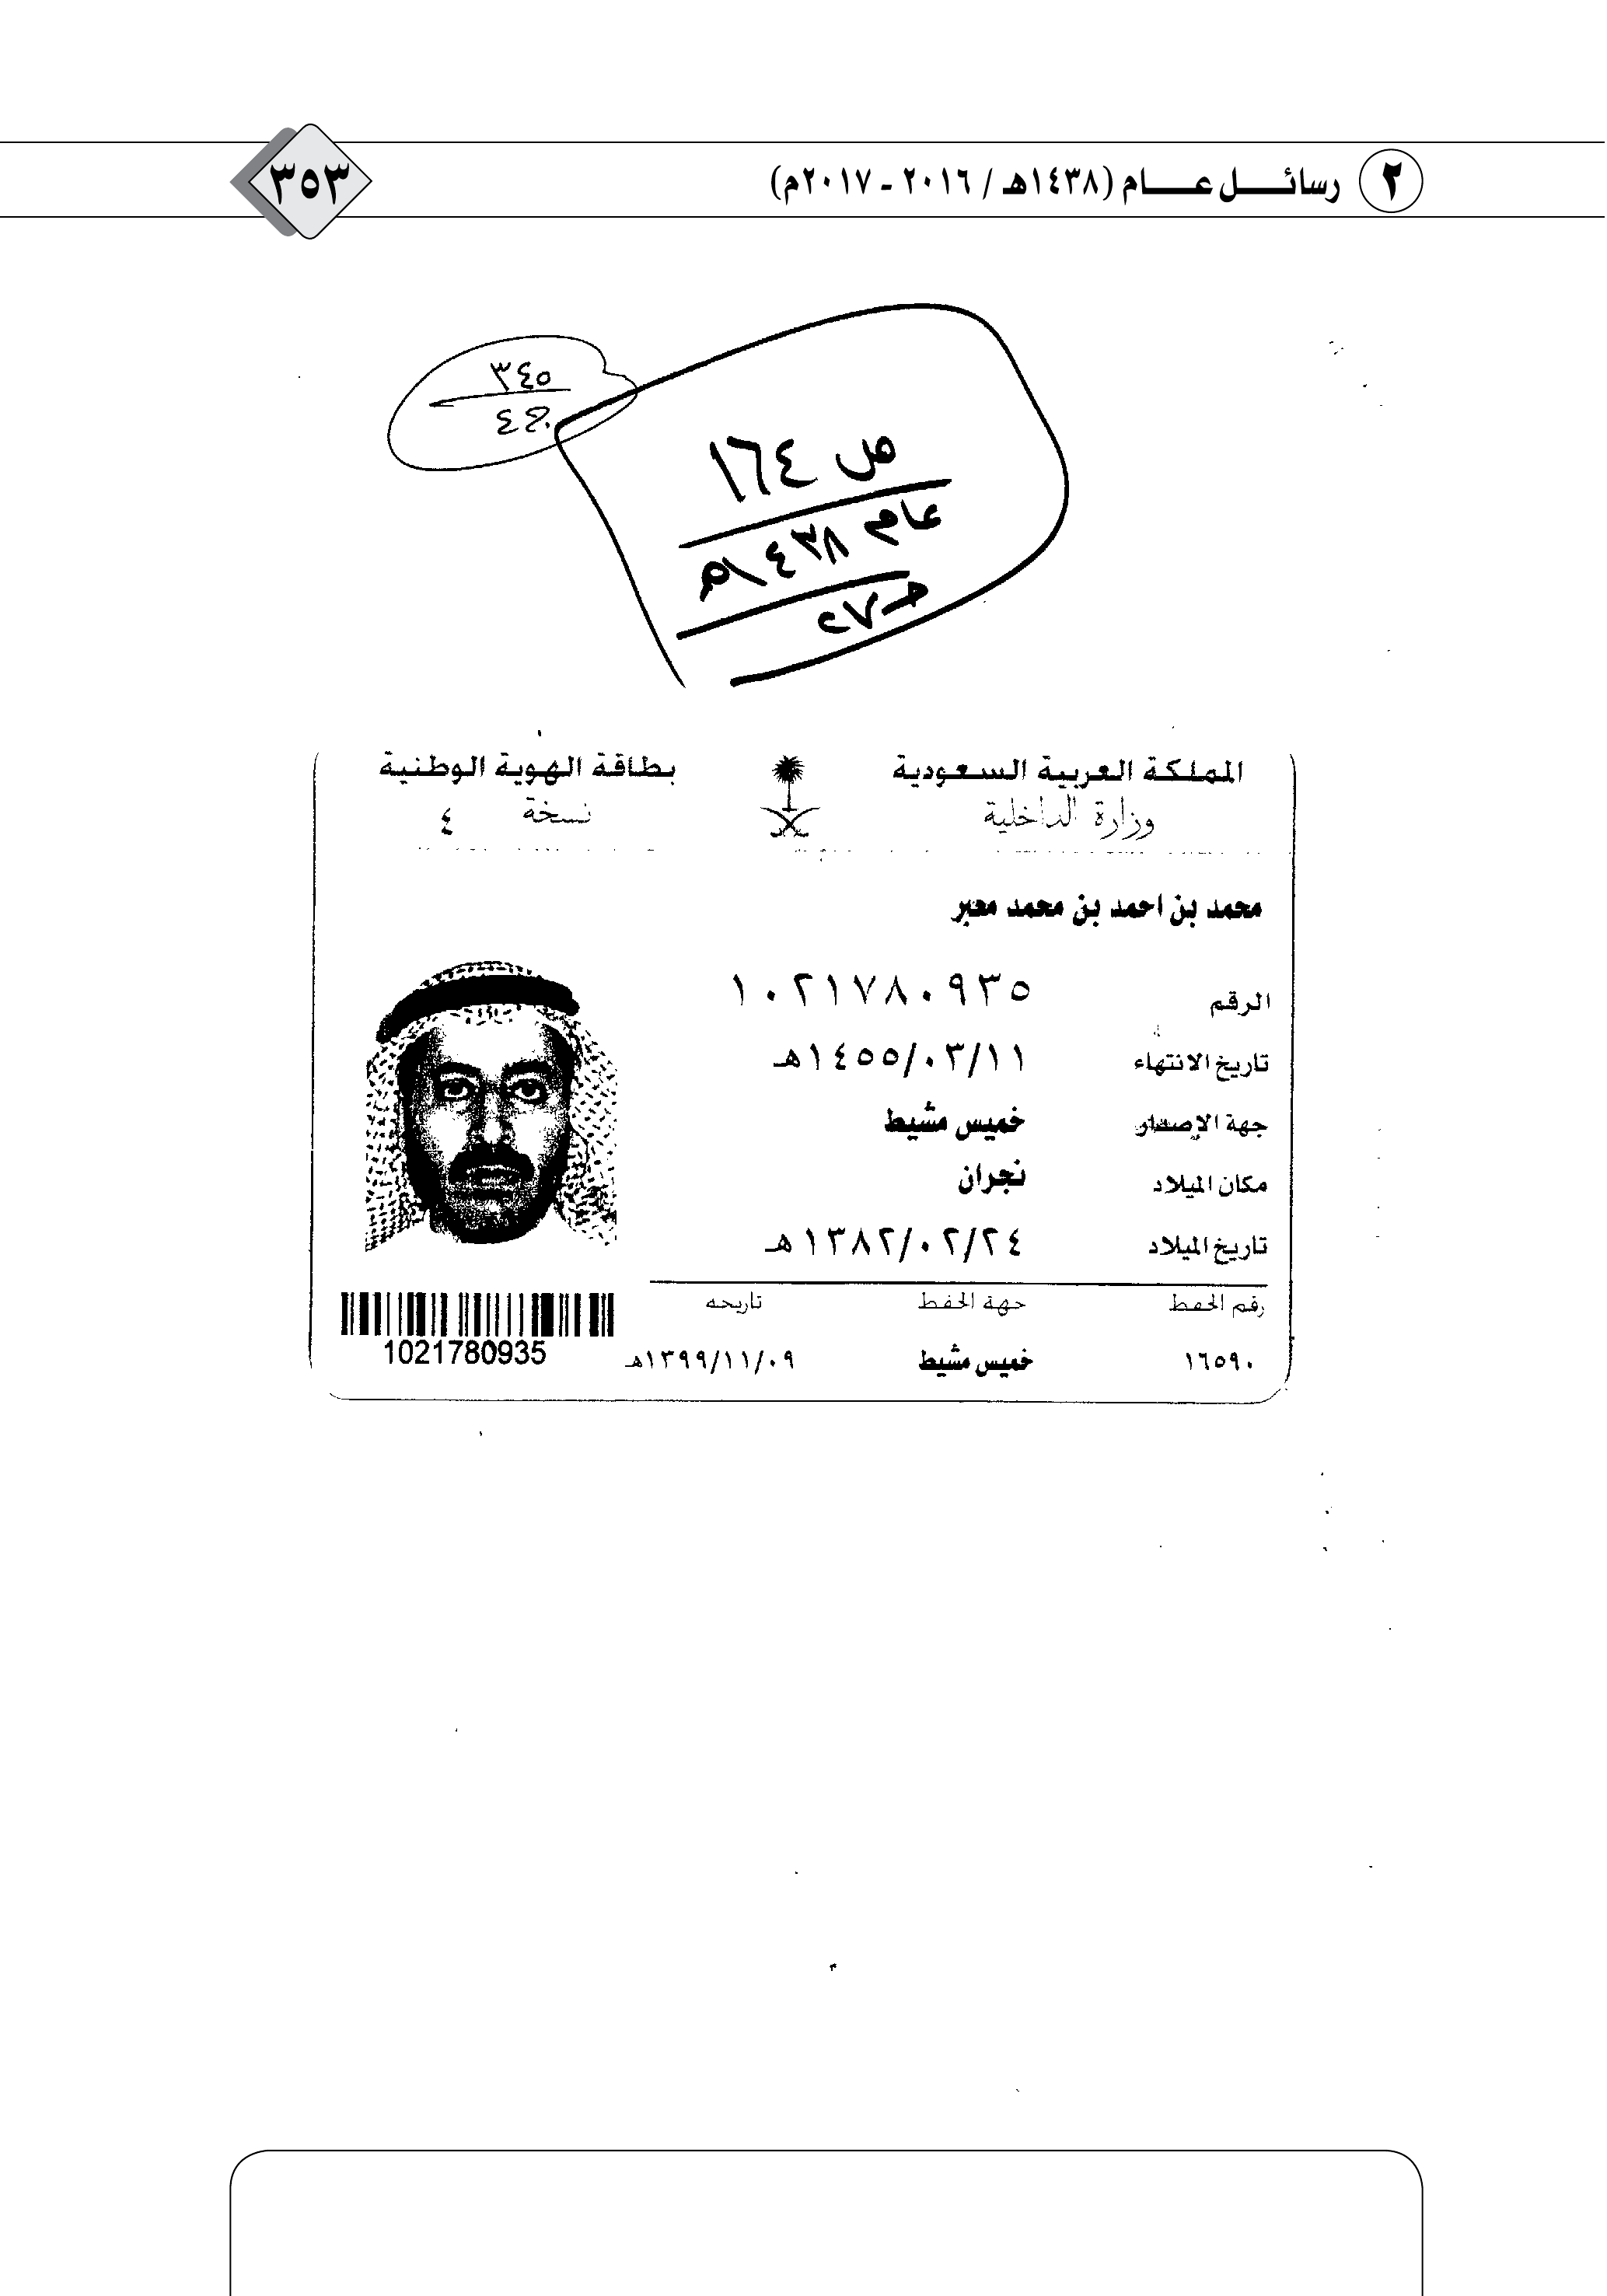 ٢ رسائل عام (١٤٣٨هـ / ٢٠١٦ - ٢٠١٧م) ٣٥٣
٣٤٥
ص ١٦٤
عام ١٤٣٨هـ
المملكة العربية السعودية
وزارة الداخلية
بطاقة الهوية الوطنية
نسخة ٤
محمد بن احمد بن محمد معبر
الرقم ١٠٢١٧٨٠٩٣٥
تاريخ الانتهاء ١٤٥٥/٠٣/١١هـ
جهة الإصدار خميس مشيط
مكان الميلاد نجران
تاريخ الميلاد ١٣٨٢/٠٢/٢٤هـ
رقم الحفظ جهة الحفظ تاريخه
١٦٥٩٠ خميس مشيط ١٣٩٩/١١/٠٩هـ
1021780935